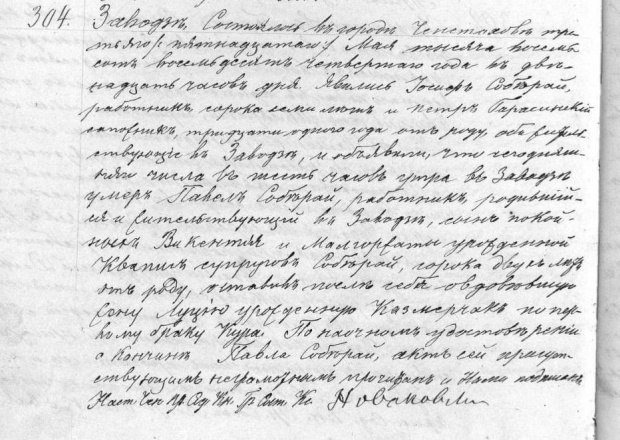 304.
Заводзе. Состоялось въ городѣ Ченстоховѣ тре-
тьяго /: пятнадцатаго :/ Мая тысяча восемь
сотъ восемьдесятъ четвертаго года въ двѣ-
надцать часовъ дня. Явились Іосифъ Собѣрай,
работникъ, сорока семи лѣтъ и Петръ Гарасинскій
сапожникъ, тридцати одного года отъ роду, оба житель-
ствующіе въ Заводзѣ, и объявили, что сегодняш-
няго числа въ шесть часовъ утра въ Заводзѣ
умеръ Павелъ Собѣрай, работникъ, родившій-
ся и жительствующій въ Заводзѣ, сынъ покой-
ныхъ Викентія и Малгоржаты урожденной
Квапишъ супруговъ Собѣрай, сорока двухъ лѣтъ
отъ роду, оставивъ послѣ себя овдовѣвшую
жену Луцію урожденную Казмерчакъ по пер-
вому браку Кура. По наочномъ удостовѣреніи
о кончинѣ Павла Собѣрай, актъ сей присут-
ствующимъ неграмотнымъ прочитанъ и Нами подписанъ
Наст. Чен. Пр. Гр. Сост. Кс. Новаковскі